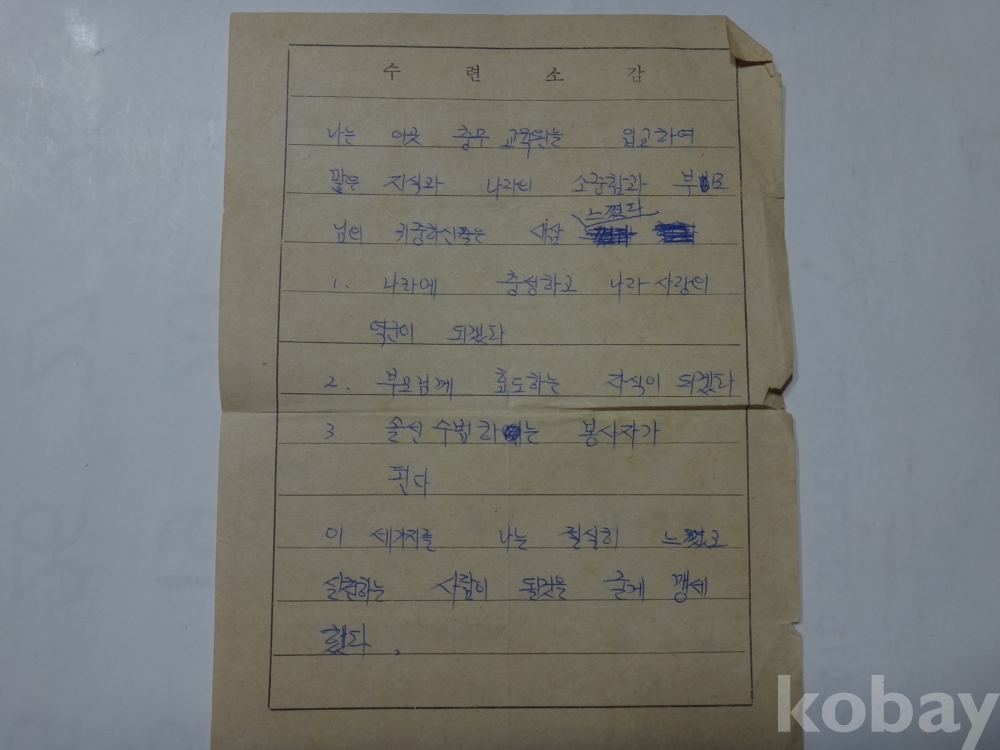 수 련 소 감
나는 이곳 충무 교육원을 입교하여
많은 지식과 나라의 소중함과 부모
님의 귀중하신줄은 새삼 느꼈다
1. 나라에 충성하고 나라 사랑의
역군이 되겠다
2. 부모님께 효도하는 자식이 되겠다
3 솔선 수범 하는 봉사자가
된다
이 세가지를 나는 절실히 느꼈고
실천하는 사람이 될것을 굳게 맹세
했다.
kobay